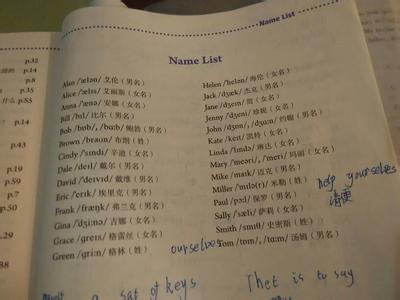 Name List
Name List
Alan /ˈælən/ 艾伦（男名）
Alice /ˈælɪs/ 艾丽斯（女名）
Anna /ˈænə/ 安娜（女名）
Bill /bɪl/ 比尔（男名）
Bob /bɒb/, /bɑːb/ 鲍勃（男名）
Brown /braʊn/ 布朗（姓）
Cindy /ˈsɪndi/ 辛迪（女名）
Dale /deɪl/ 戴尔（男名）
David /ˈdeɪvɪd/ 戴维（男名）
Eric /ˈerɪk/ 埃里克（男名）
Frank /fræŋk/ 弗兰克（男名）
Gina /ˈdʒiːnə/ 吉娜（女名）
Grace /greɪs/ 格雷丝（女名）
Green /griːn/ 格林（姓）
Helen /ˈhelən/ 海伦（女名）
Jack /dʒæk/ 杰克（男名）
Jane /dʒeɪn/ 简（女名）
Jenny /ˈdʒeni/ 珍妮（女名）
John /dʒɒn/, /dʒɑːn/ 约翰（男名）
Kate /keɪt/ 凯特（女名）
Linda /ˈlɪndə/ 琳达（女名）
Mary /ˈmeəri/, /ˈmeri/ 玛丽（女名）
Mike /maɪk/ 迈克（男名）
Miller /ˈmɪlə(r)/ 米勒（姓）
Paul /pɔːl/ 保罗（男名）
Sally /ˈsæli/ 萨莉（女名）
Smith /smɪθ/ 史密斯（姓）
Tom /tɒm/, /tɑːm/ 汤姆（男名）
help yourselves
请便
ourselves
a set of keys
That is to say
p.32
p.14
p.8
p.35
p.8
p.7
p.59
p.7
p.2
p.50
p.29
38